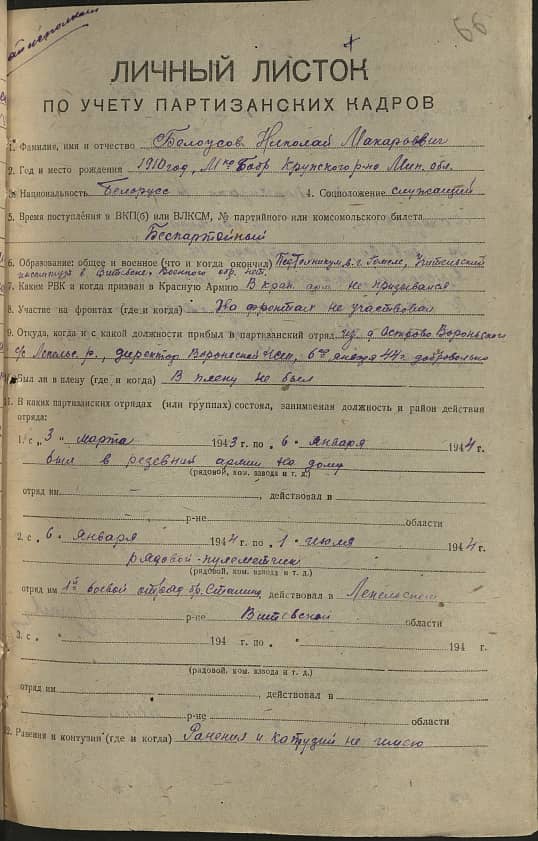 66
ЛИЧНЫЙ ЛИСТОК
ПО УЧЕТУ ПАРТИЗАНСКИХ КАДРОВ
1. Фамилия, имя и отчество Белоусов Николай Макарович
2. Год и место рождения 1910 год, Бобр Крупского р-на Мин. обл.
3. Национальность Белорусс 4. Соцположение служащий
5. Время поступления в ВКП(б) или ВЛКСМ, № партийного или комсомольского билета
Беспартойный
6. Образование: общее и военное (что и когда окончил) Педтехникум в г. Гомеле, Учительский
институт в Витебске. Военного обр. нет.
7. Каким РВК и когда призван в Красную Армию В крас. арм. не призывался
8. Участие на фронтах (где и когда) На фронтах не участвовал
9. Откуда, когда и с какой должности прибыл в партизанский отряд из д. Острово Вороньского
с/с Лепельс. р., директор НСШ, 6го января 44 г. добровольно
10. Был ли в плену (где и когда) В плену не был
11. В каких партизанских отрядах (или группах) состоял, занимаемая должность и район действия
отряда:
1. с „3" марта 1943 г. по „6" января 1944 г.
был в резевния армии на дому
(рядовой, ком. взвода и т. д.)
отряд им. , действовал в
р-не области
2. с „6" января 1944 г. по „1" июля 1944 г.
рядовой-пулеметчик
(рядовой, ком. взвода и т. д.)
отряд им 1й боевой отряд бр. Сталина, действовал в Лепельском
р-не Витебской области
3. с „ " 194 г. по „ " 194 г.
(рядовой, ком. взвода и т. д.)
отряд им. , действовал в
р-не области
12. Ранения и контузии (где и когда) Ранения и катузий не имею